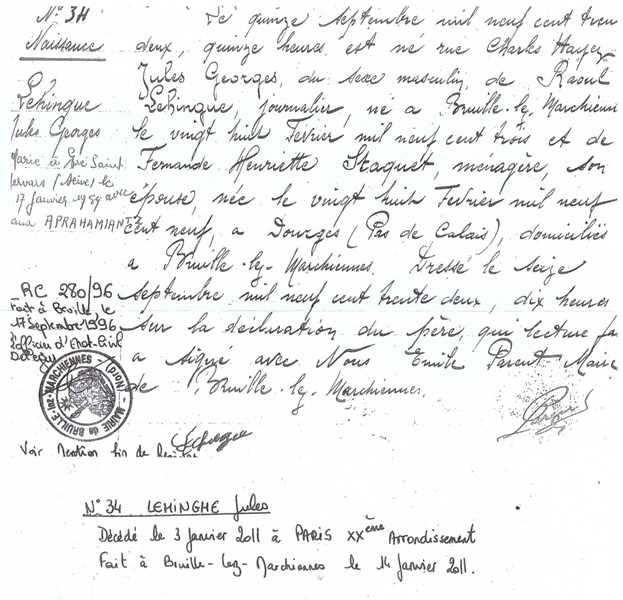 N° 34
Naissance
Lehingue
Jules Georges
Marié à Pré Saint
Gervais (Seine) le
17 Janvier 1959 avec
APRAHAMIANTZ
RC 280/96
Fait à Bruille le
17 Septembre 1996
L'officier d'Etat-Civil
Délégué
Le quinze septembre mil neuf cent trente
deux, quinze heures est né rue Charles
Jules Georges, du sexe masculin, de Raoul
Lehingue, journalier, né à Bruille-lez-Marchiennes
le vingt huit Février mil neuf cent trois et de
Fernande Henriette Staquet, ménagère, son
épouse, née le vingt huit Février mil neuf
cent neuf, à Dourges (Pas de Calais), domiciliés
à Bruille-lez-Marchiennes. Dressé le seize
septembre mil neuf cent trente deux, dix heures
sur la déclaration du père, qui lecture
a signé avec Nous Emile Parent Maire
de Bruille-lez-Marchiennes.
MAIRIE de BRUILLE-lez-MARCHIENNES
Voir Mention fin de
Lehingue
N° 34 LEHINGHE Jules
Décédé le 3 janvier 2011 à PARIS XXème Arrondissement
Fait à Bruille-lez-Marchiennes le 14 janvier 2011.